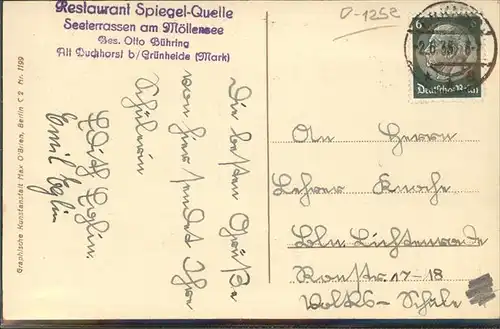 Restaurant Spiegel-Quelle
Seeterrassen am Möllensee
Bes. Otto Bühring
Alt Buchhorst b/Grünheide (Mark)
D-1252
6
Deutsches Reich
Die besten Grüße
von hier sendet Ihr
Schülerin
Edith Eglin.
Emil Eglin
An Herrn
Lehrer
Bln. Lichtenrade
17-18
Volks-Schule
Graphische Kunstanstalt Max O'Brien, Berlin C 2 Nr. 1199